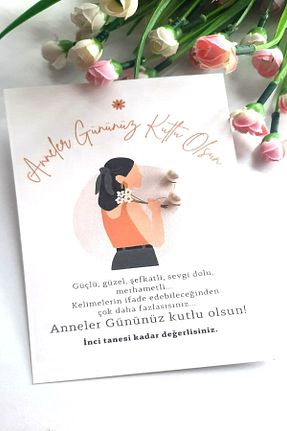 Anneler Gününüz Kutlu Olsun
Güçlü, güzel, şefkatli, sevgi dolu,
merhametli...
Kelimelerin ifade edebileceğinden
çok daha fazlasısınız...
Anneler Gününüz kutlu olsun!
İnci tanesi kadar değerlisiniz.